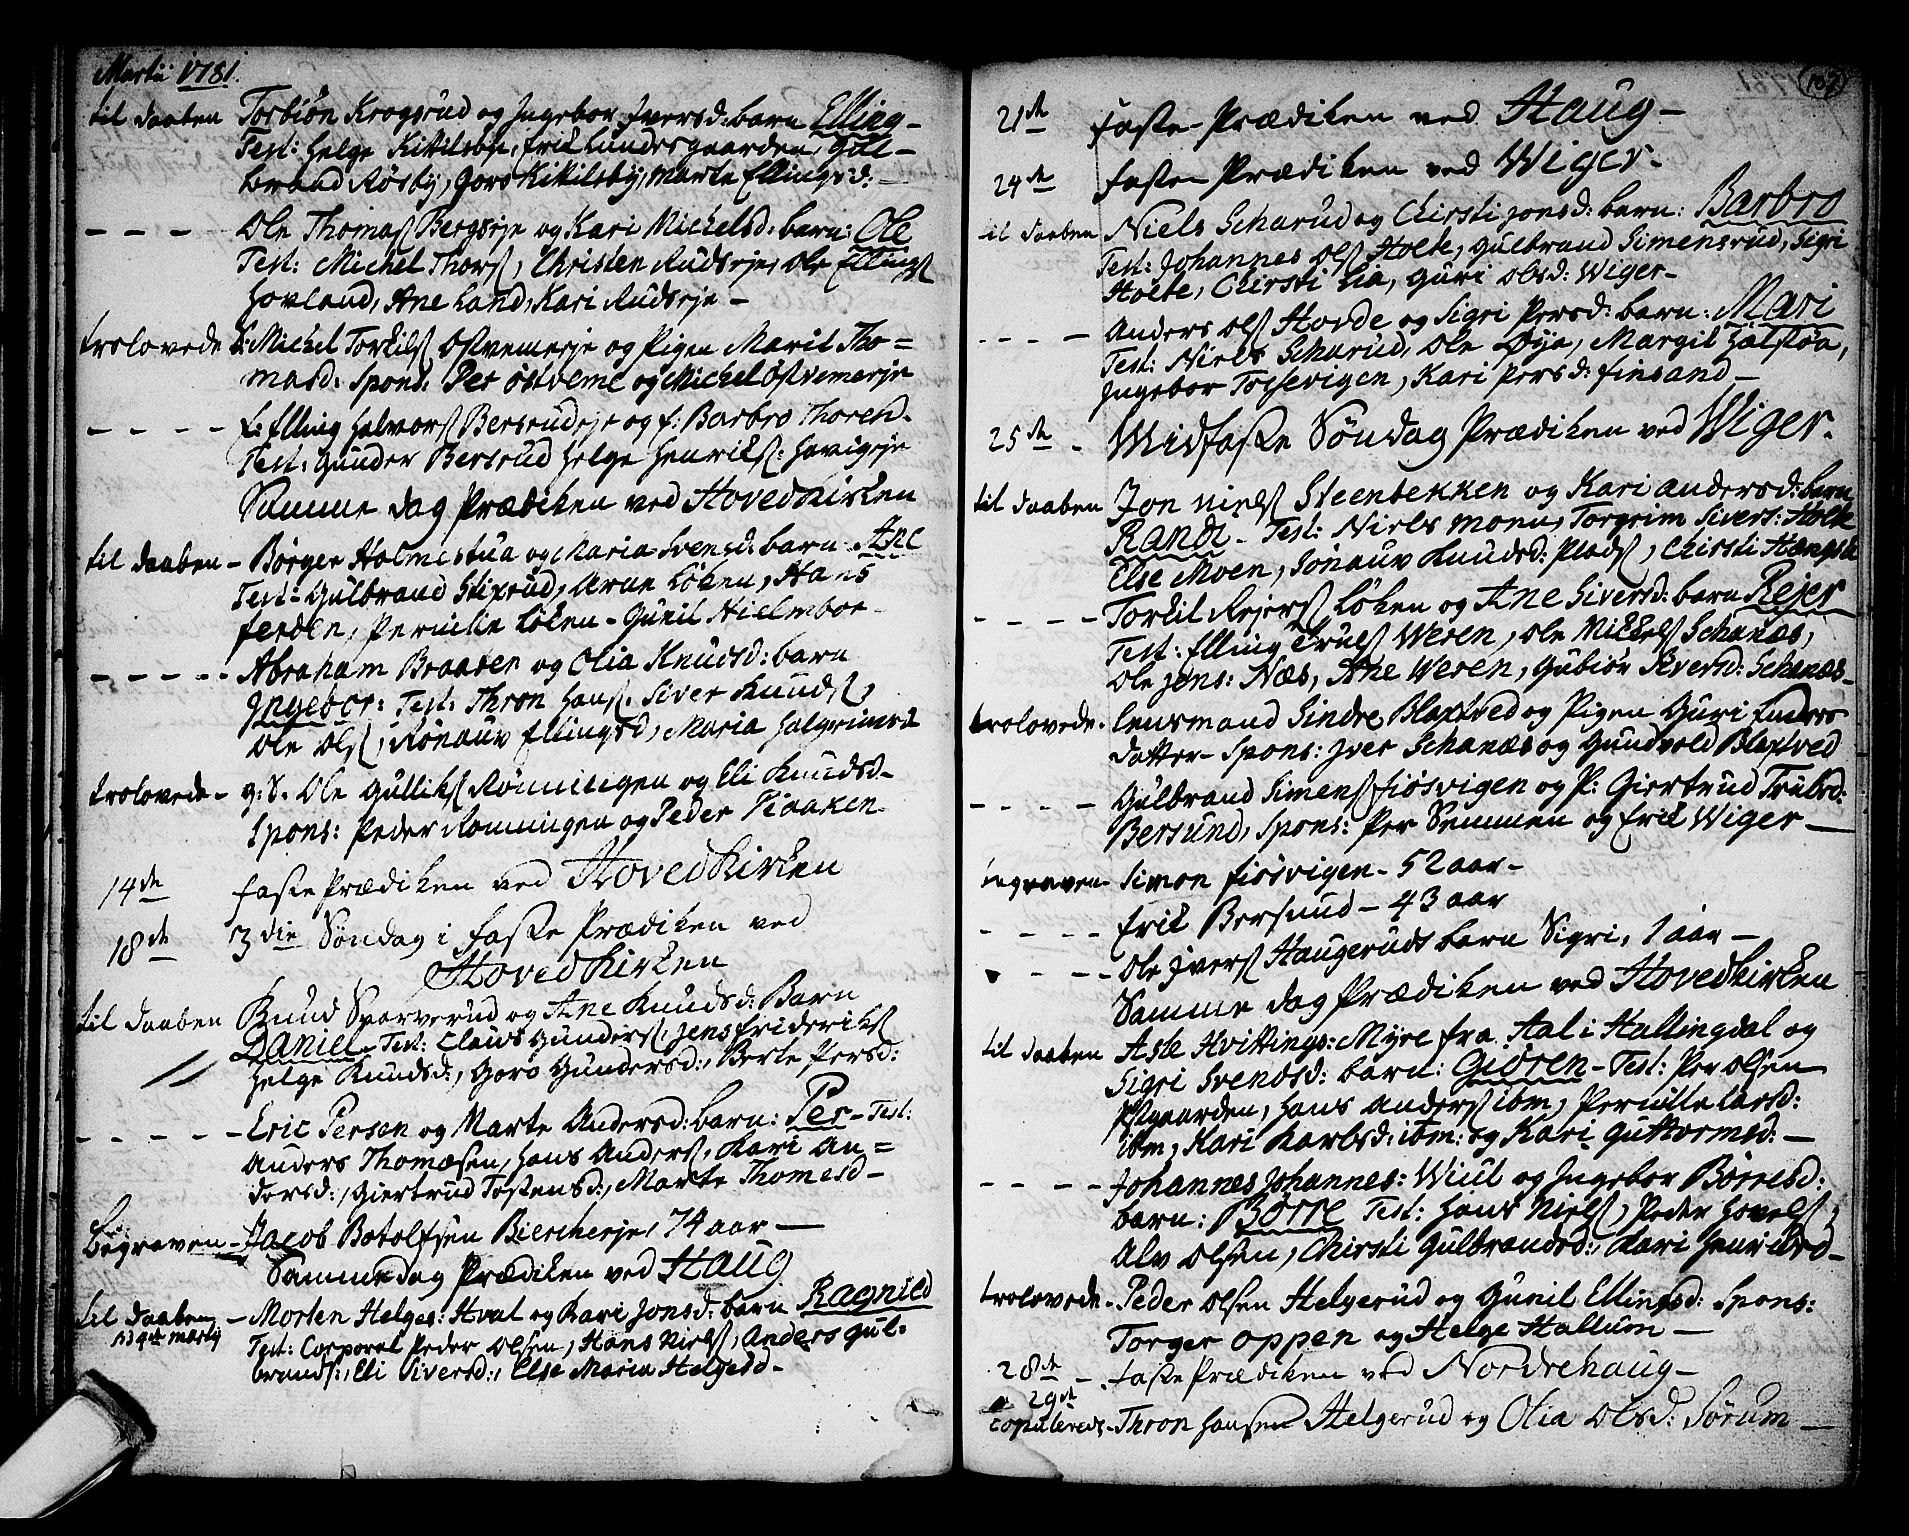 Martii 1781.
til daaben Torbiön Krogsrud og Ingebor Iversd: barn Elling –
Test: Helge Kikilsbye, Erik Lundesgaarden, Gul-
brand Røsby, Goro Kikilsby, Marte Ellingsd: –
– – – – Ole Thomas Bergseje og Kari Michelsd: barn: Ole
Test: Michel Thors, Christen Rudseje, Ole Ellings
Hovland, Ane Land, Kari Rudseje –
trolovede S: Michel Torkils Østvemeeje og Pigen Marit Tho=
masd: Spons: Per Østveme og Michel Østvemeeje
– – – – E: Elling Halvors Bersrudeje og E: Barbro Thoren.
Test: Gunder Bersrud Helge Henriks: Hovigeje
Samme dag Prædiken ved Hovedkirken
til daaben – Børger Holmestua og Maria Svensd: barn: Ane
Test: Gulbrand Stixrud, Arne Løken, Hans
Ferden, Pernille Løken – Gunil Nielmboe –
– – – – Abraham Braaten og Olia Knudsd: barn
Ingebor: Test: Thron Hans, Siver Knuds,
Ole Ols, Rønauv Ellingsd, Maria Halgrimsd
trolovede – g: S. Ole Gulliks Rønningen og Eli Knudsd –
Spons: Peder Rønningen og Peder Plaaken
14de Faste Prædiken ved Hovedkirken
18de 3die Søndag i Faste Prædiken ved
Hovedkirken
til daaben Knud Sparverud og Ane Knudsd: Barn
Daniel – Test: Claus Gunders, Jens Frideriks
Helge Knudsd:, Goro Gundersd:, Berte Persd:
– – – – Eric Persen og Marte Andersd: barn: Per – Test:
Anders Thomæsen, Hans Anders, Kari An=
dersd:, Giertrud Tostensd:, Marte Thomesd –
Begraven – Jacob Botolfsen Biercheeje, 74 aar –
Samme dag Prædiken ved Haug
til daaben – Morten Helges: Hval og Kari Jonsd: barn Ragnild
Test: Corporal Peder Olsen, Hans Niels, Anders Gul-
brands:, Eli Siversd:, Else Maria Helgesd –
107
21de Faste-Prædiken ved Haug –
24de Faste Prædiken ved Wiger –
til daaben Niels Scharud og Chirsti Jonsd: barn: Barbro
Test: Johannes Ols Holte, Gulbrand Simensrud, Sigri
Holte, Chirsti Lia, Guri Olsd: Wiger –
– – – – Anders Ols Hovde og Sigri Persd: barn: Mari
Test: Niels Scharud, Ole Øye, Margit
Ingebor Tossevigen, Kari Persd: Finsand –
25de – Midfaste Søndag Prædiken ved Wiger –
til daaben Jon Niels Steenbekken og Kari Andersd: barn
Randi – Test: Niels Moen, Torgrim Sivers: Holte
Else Moen, Sønauv Knudsd: Plads, Chirsti
– – – – Torkil Rejers Løken og Ane Siversd: barn Rejer
Test: Elling Truls Weren, Ole Mikkels Schanæs,
Ole Jens: Næs, Ane Weren, Gubiør Siversd: Schanæs –
trolovede – Lensmand Sindre Blaxtved og Pigen Guri Enders
datter – Spons: Iver Schanæs og Gundvold Blaxtved
– – – – Gulbrand Simens Fiøsvigen og P: Giertrud Trulsd:
Bersund, Spons: Per Semmen og Erik Wiger –
begraven – Simon Fiøsvigen – 52 aar –
– – – – Erik Bersund – 43 aar
– – – – Ole Ivers Haugeruds barn Sigri, 1 aar –
Samme dag Prædiken ved Hovedkirken
til daaben Asle Hvittings: Myre fra Aal i Hallingdal og
Sigri Svendsd: barn: Giøren – Test: Per Olsen
Østgaarden, Hans Anders ibm, Pernille Larsd:
ibm, Kari Karlsd: ibm: og Kari Guttormsd: –
– – – – Johannes Johannes: Wiul og Ingebor Børresd:
barn: Børre Test: Hans Niels, Peder Hovels,
Alv Olsen, Chirsti Gulbrandsd:, Kari Henriksd –
trolovede – Peder Olsen Helgerud og Gunil Ellingsd: Spons:
Torger Oppen og Helge Hallum –
28de – Faste Prædiken ved Nordrehaug –
29de
Copulerede – Thron Hansen Helgerud og Olia Olsd: Sørum –